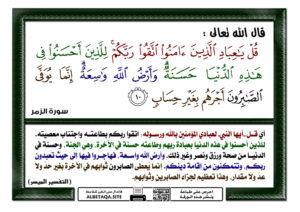 قال الله تعالى :
قُلْ يَٰعِبَادِ ٱلَّذِينَ ءَامَنُوا۟ ٱتَّقُوا۟ رَبَّكُمْ ۚ لِلَّذِينَ أَحْسَنُوا۟ فِى
هَٰذِهِ ٱلدُّنْيَا حَسَنَةٌ ۗ وَأَرْضُ ٱللَّهِ وَٰسِعَةٌ ۗ إِنَّمَا يُوَفَّى
ٱلصَّٰبِرُونَ أَجْرَهُم بِغَيْرِ حِسَابٍ ١٠
سورة الزمر
أي قل -أيها النبي- لعبادي المؤمنين بالله ورسوله: اتقوا ربكم بطاعته واجتناب معصيته.
للذين أحسنوا في هذه الدنيا بعبادة ربهم وطاعته حسنة في الآخرة، وهي الجنة، وحسنة في
الدنيا من صحة ورزق ونصر وغير ذلك. وأرض الله واسعة، فهاجروا فيها إلى حيث تعبدون
ربكم، وتتمكنون من إقامة دينكم. إنما يعطى الصابرون ثوابهم في الآخرة بغير حد ولا
عد ولا مقدار، وهذا تعظيم لجزاء الصابرين وثوابهم.
(التفسير الميسر)
ALBETAQA.SITE
احرص على طباعة
ونشر هذه الورقة